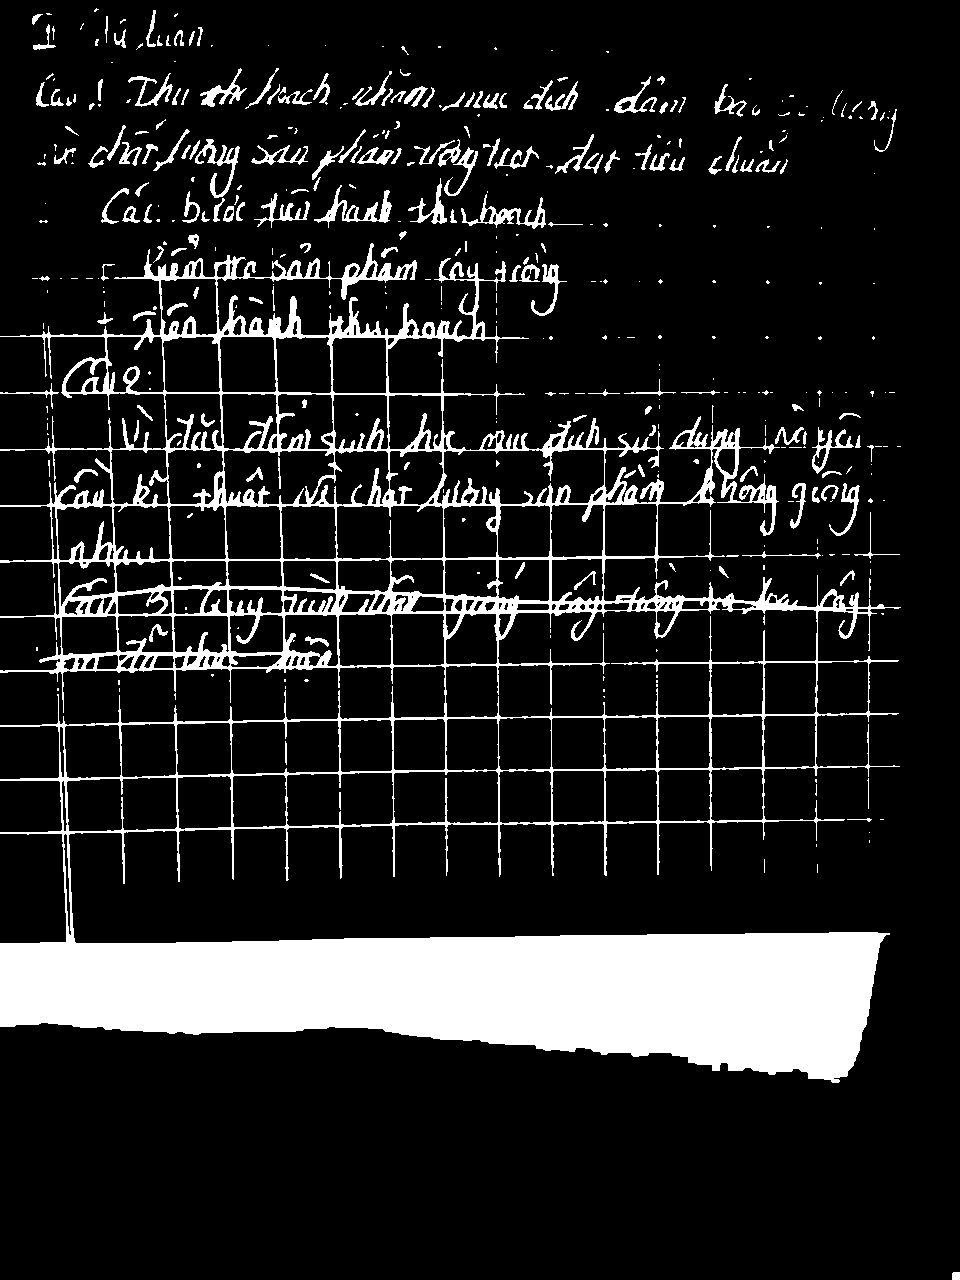 II Tự luận
Câu 1 Thu hoạch nhằm mục đích đảm bảo số lượng
và chất lượng sản phẩm trồng trọt đạt tiêu chuẩn
Các bước tiến hành thu hoạch
- Kiểm tra sản phẩm cây trồng
- Tiến hành thu hoạch
Câu 2:
Vì đặc điểm sinh học, mục đích sử dụng và yêu
cầu kĩ thuật về chất lượng sản phẩm không giống
nhau
Câu 3 Quy trình nhân giống cây trồng và loại cây
em đã thực hiện